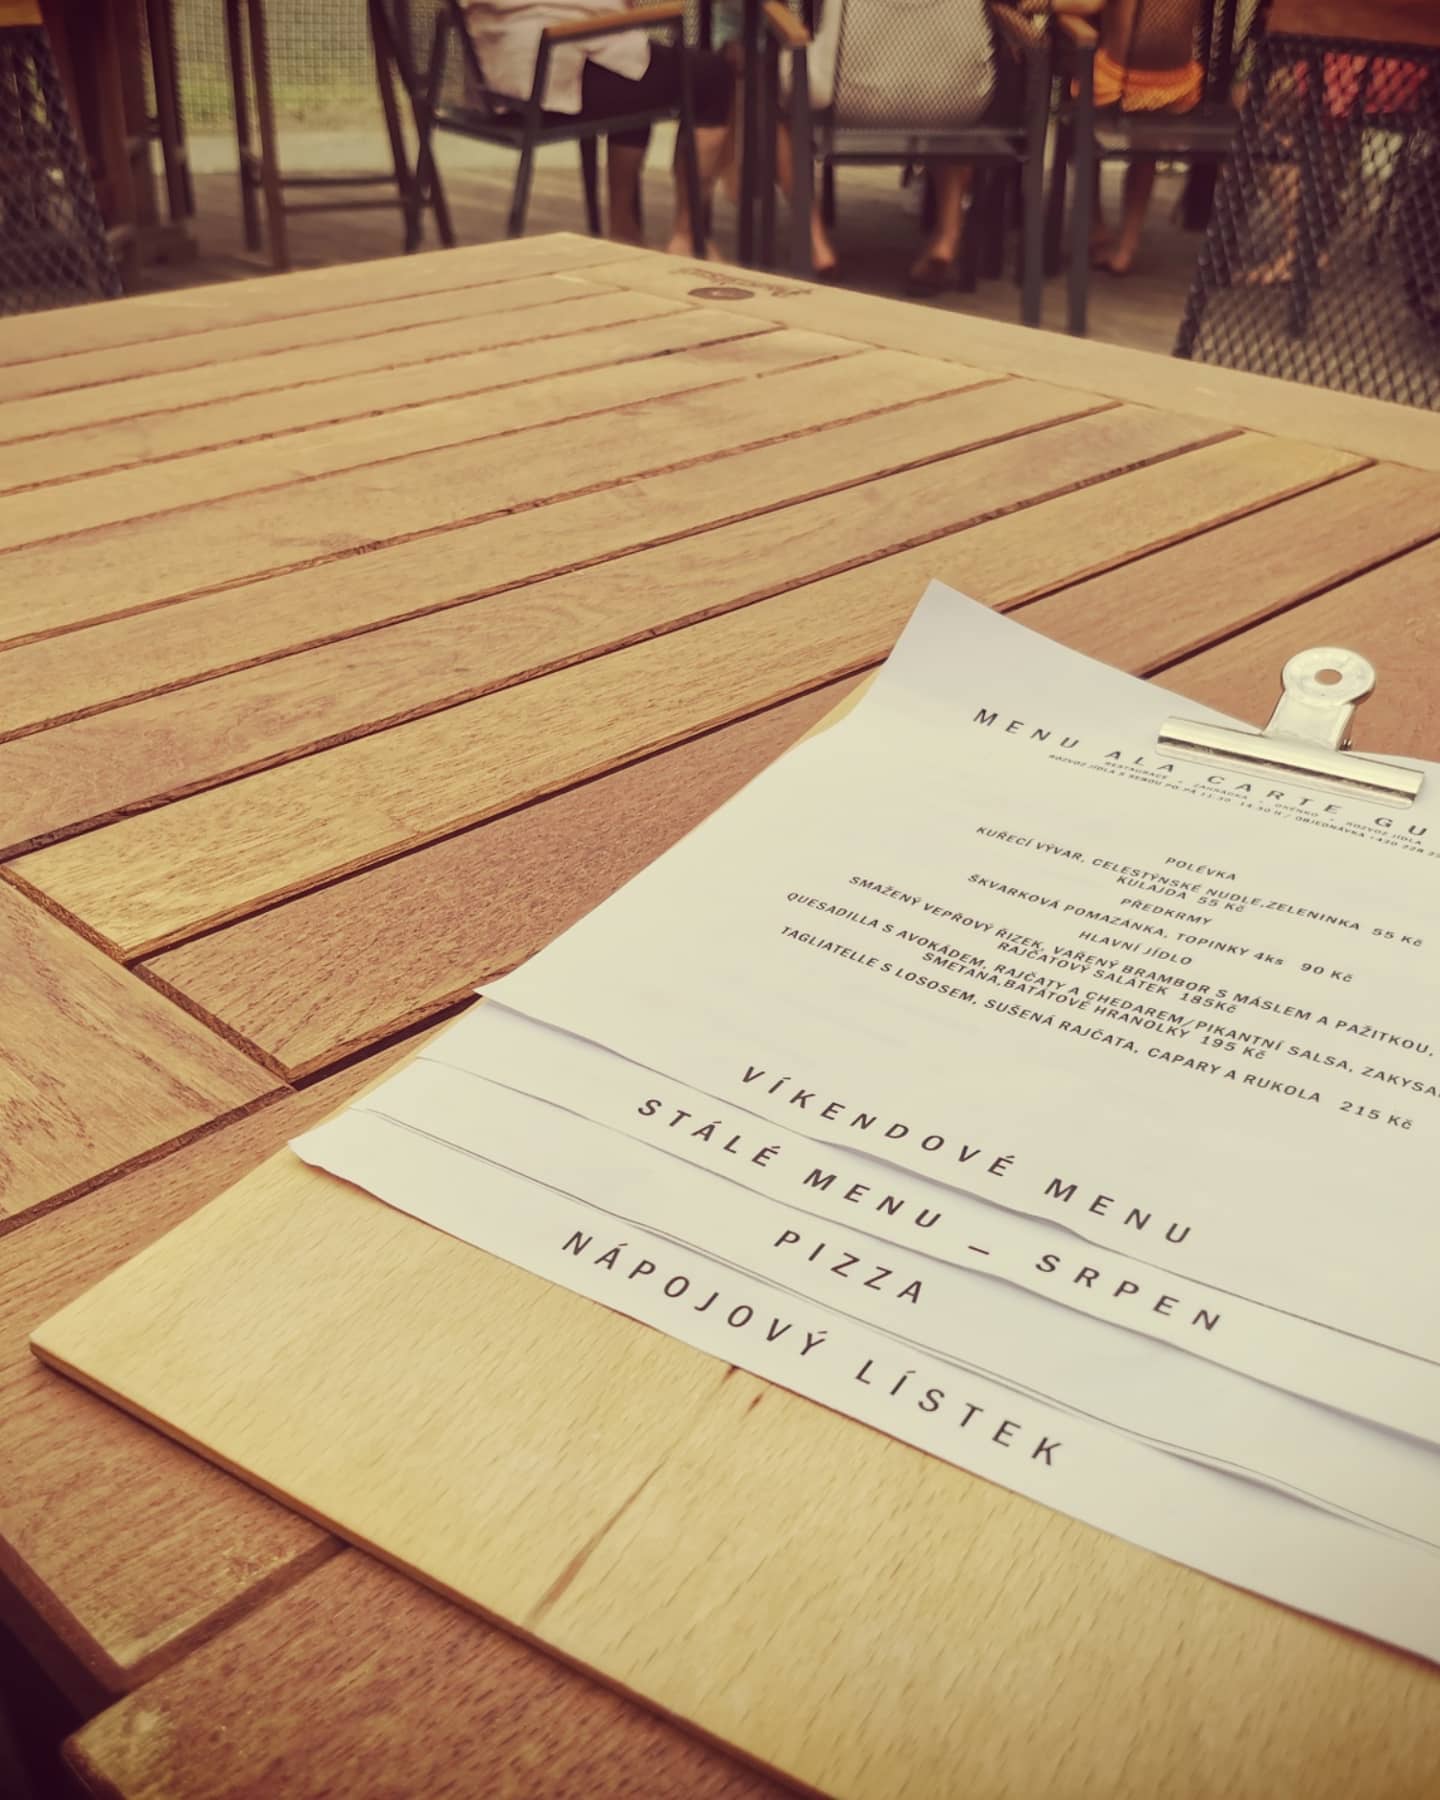 MENU ALA CARTE GU
RESTAURACE - ZAHRÁDKA - OKÉNKO - ROZVOZ JÍDLA
ROZVOZ JÍDLA S SEBOU PO-PÁ 11.30 14.30 H / OBJEDNÁVKA +420 228
POLÉVKA
KUŘECÍ VÝVAR, CELESTÝNSKÉ NUDLE,ZELENINKA 55 Kč
KULAJDA 55 Kč
PŘEDKRMY
ŠKVARKOVÁ POMAZÁNKA, TOPINKY 4ks 90 Kč
HLAVNÍ JÍDLO
SMAŽENÝ VEPŘOVÝ ŘIZEK, VAŘENÝ BRAMBOR S MÁSLEM A PAŽITKOU,
RAJČATOVÝ SALÁTEK 185Kč
QUESADILLA S AVOKÁDEM, RAJČATY A CHEDAREM/PIKANTNÍ SALSA, ZAKYSA
SMETANA,BATÁTOVÉ HRANOLKY 195 Kč
TAGLIATELLE S LOSOSEM, SUŠENÁ RAJČATA, CAPARY A RUKOLA 215 Kč
VÍKENDOVÉ MENU
STÁLÉ MENU – SRPEN
PIZZA
NÁPOJOVÝ LÍSTEK